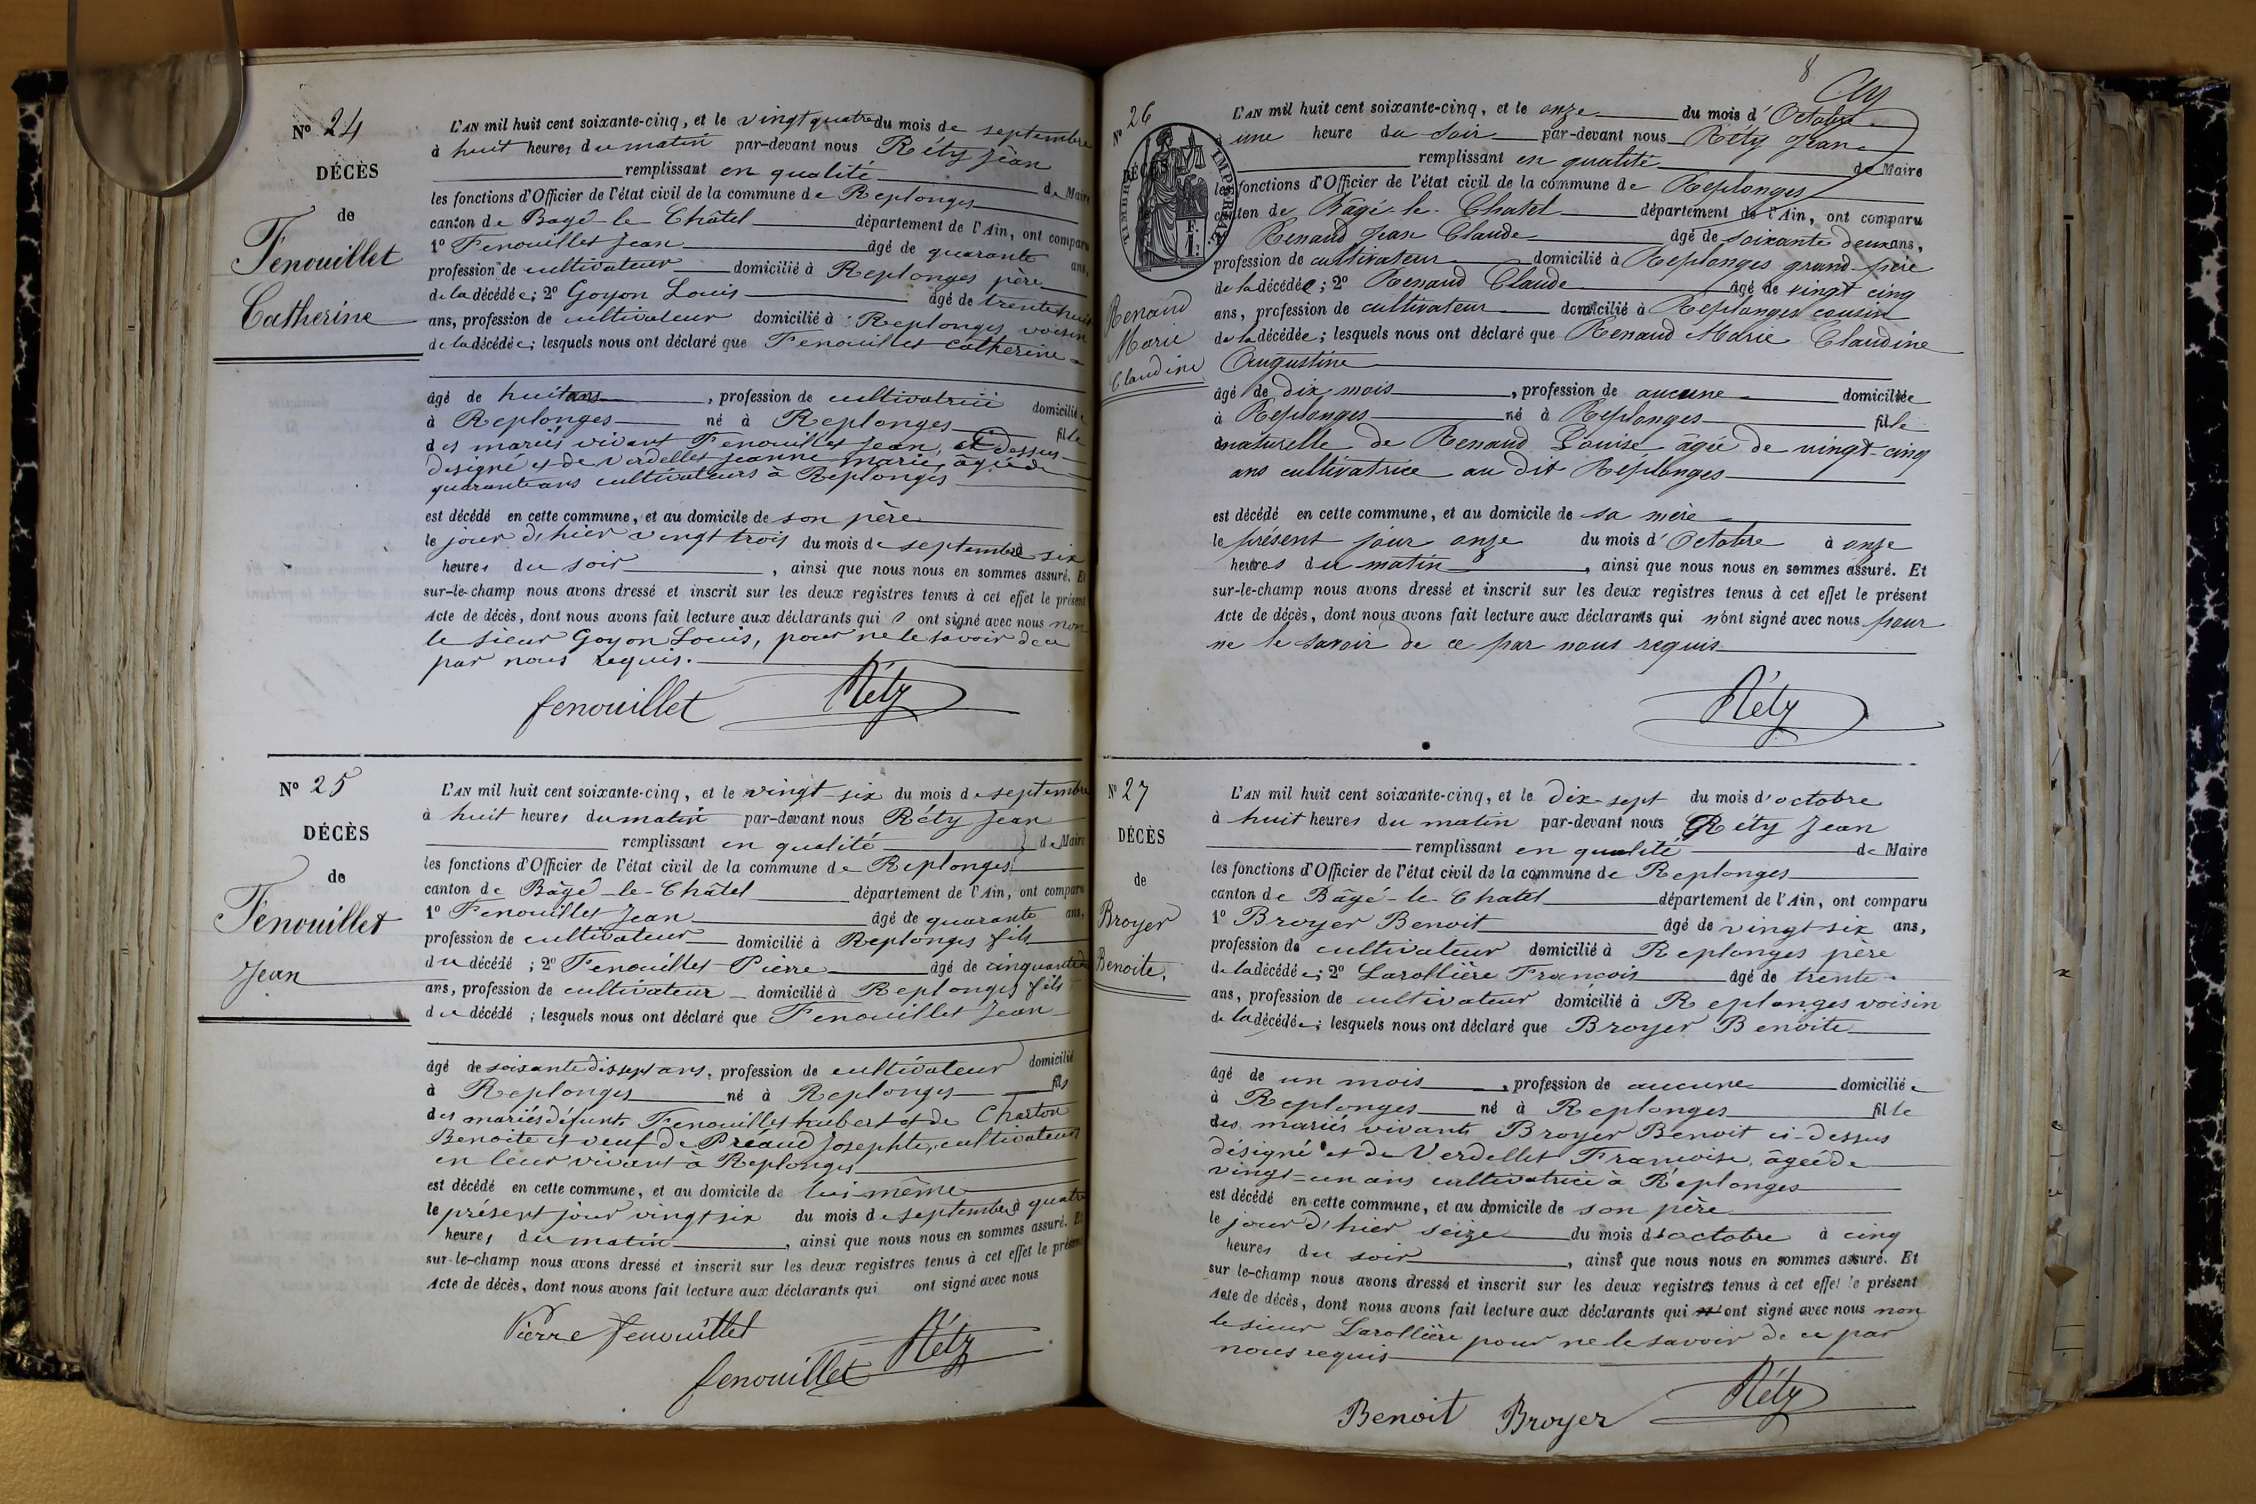 Nº 24
DÉCÈS
de
Fenouillet
Catherine
L'AN mil huit cent soixante-cinq, et le vingt quatre du mois de septembre
à huit heures du matin par-devant nous Réty Jean
remplissant en qualité de Maire
les fonctions d'Officier de l'état civil de la commune de Replonges
canton de Bagé-le-Châtel département de l'Ain, ont comparu
1º Fenouillet Jean âgé de quarante ans,
profession de cultivateur domicilié à Replonges père
de la décédée; 2º Goyon Louis âgé de trente huit
ans, profession de cultivateur domicilié à Replonges voisin
de la décédée; lesquels nous ont déclaré que Fenouillet Catherine
âgé de huit ans, profession de cultivatrice domiciliée
à Replonges né à Replonges fille
des mariés vivant Fenouillet Jean, ci dessus
designé et de Verdellet Jeanne Marie, âgée de
quarante ans cultivateurs à Replonges
est décédé en cette commune, et au domicile de son père
le jour d'hier vingt trois du mois de septembre à six
heures du soir, ainsi que nous nous en sommes assuré. Et
sur-le-champ nous avons dressé et inscrit sur les deux registres tenus à cet effet le présent
Acte de décès, dont nous avons fait lecture aux déclarants qui ont signé avec nous non
le sieur Goyon Louis, pour ne le savoir de ce
par nous requis.
fenouillet Réty
Nº 25
DÉCÈS
de
Fenouillet
Jean
L'AN mil huit cent soixante-cinq, et le vingt-six du mois de septembre
à huit heures du matin par-devant nous Réty Jean
remplissant en qualité de Maire
les fonctions d'Officier de l'état civil de la commune de Replonges
canton de Bâgé-le-Châtel département de l'Ain, ont comparu
1º Fenouillet Jean âgé de quarante ans,
profession de cultivateur domicilié à Replonges fils
du décédé; 2º Fenouillet Pierre âgé de cinquante
ans, profession de cultivateur domicilié à Replonges fils
du décédé; lesquels nous ont déclaré que Fenouillet Jean
âgé de soixante dix sept ans, profession de cultivateur domicilié
à Replonges né à Replonges fils
des mariés défunts Fenouillet hubert et de Charton
Benoite et veuf de Préaud Josephte, cultivateurs
en leur vivant à Replonges
est décédé en cette commune, et au domicile de lui-même
le présent jour vingt six du mois de septembre à quatre
heures du matin, ainsi que nous nous en sommes assuré. Et
sur-le-champ nous avons dressé et inscrit sur les deux registres tenus à cet effet le présent
Acte de décès, dont nous avons fait lecture aux déclarants qui ont signé avec nous
Pierre fenouillet
fenouillet Réty
8
Nº 26
DÉCÈS
TIMBRE IMPÉRIAL
Renaud
Marie
Claudine
L'AN mil huit cent soixante-cinq, et le onze du mois d'Octobre
à une heure du soir par-devant nous Réty Jean
remplissant en qualité de Maire
les fonctions d'Officier de l'état civil de la commune de Replonges
canton de Bâgé-le-Chatel département de l'Ain, ont comparu
Renaud Jean Claude âgé de soixante deux ans,
profession de cultivateur domicilié à Replonges grand-père
de la décédée; 2º Renaud Claude âgé de vingt cinq
ans, profession de cultivateur domicilié à Replonges cousin
de la décédée; lesquels nous ont déclaré que Renaud Marie Claudine
Augustine
âgé de dix mois, profession de aucune domiciliée
à Replonges né à Replonges fille
naturelle de Renaud Louise âgée de vingt-cinq
ans cultivatrice au dit Replonges
est décédé en cette commune, et au domicile de sa mère
le présent jour onze du mois d'Octobre à onze
heures du matin, ainsi que nous nous en sommes assuré. Et
sur-le-champ nous avons dressé et inscrit sur les deux registres tenus à cet effet le présent
Acte de décès, dont nous avons fait lecture aux déclarants qui n'ont signé avec nous pour
ne le savoir de ce par nous requis
Réty
Nº 27
DÉCÈS
de
Broyer
Benoite,
L'AN mil huit cent soixante-cinq, et le dix-sept du mois d'octobre
à huit heures du matin par-devant nous Réty Jean
remplissant en qualité de Maire
les fonctions d'Officier de l'état civil de la commune de Replonges
canton de Bâgé-le-Chatel département de l'Ain, ont comparu
1º Broyer Benoit âgé de vingt six ans,
profession de cultivateur domicilié à Replonges père
de la décédée; 2º Larollière François âgé de trente
ans, profession de cultivateur domicilié à Replonges voisin
de la décédée; lesquels nous ont déclaré que Broyer Benoite
âgé de un mois, profession de aucune domiciliée
à Replonges né à Replonges fille
des mariés vivants Broyer Benoit ci-dessus
désigné et de Verdellet Françoise, âgée de
vingt-un ans cultivatrice à Replonges
est décédé en cette commune, et au domicile de son père
le jour d'hier seize du mois d'octobre à cinq
heures du soir, ainsi que nous nous en sommes assuré. Et
sur le-champ nous avons dressé et inscrit sur les deux registres tenus à cet effet le présent
Acte de décès, dont nous avons fait lecture aux déclarants qui ont signé avec nous non
le sieur Larollière pour ne le savoir de ce par
nous requis
Réty
Benoit Broyer